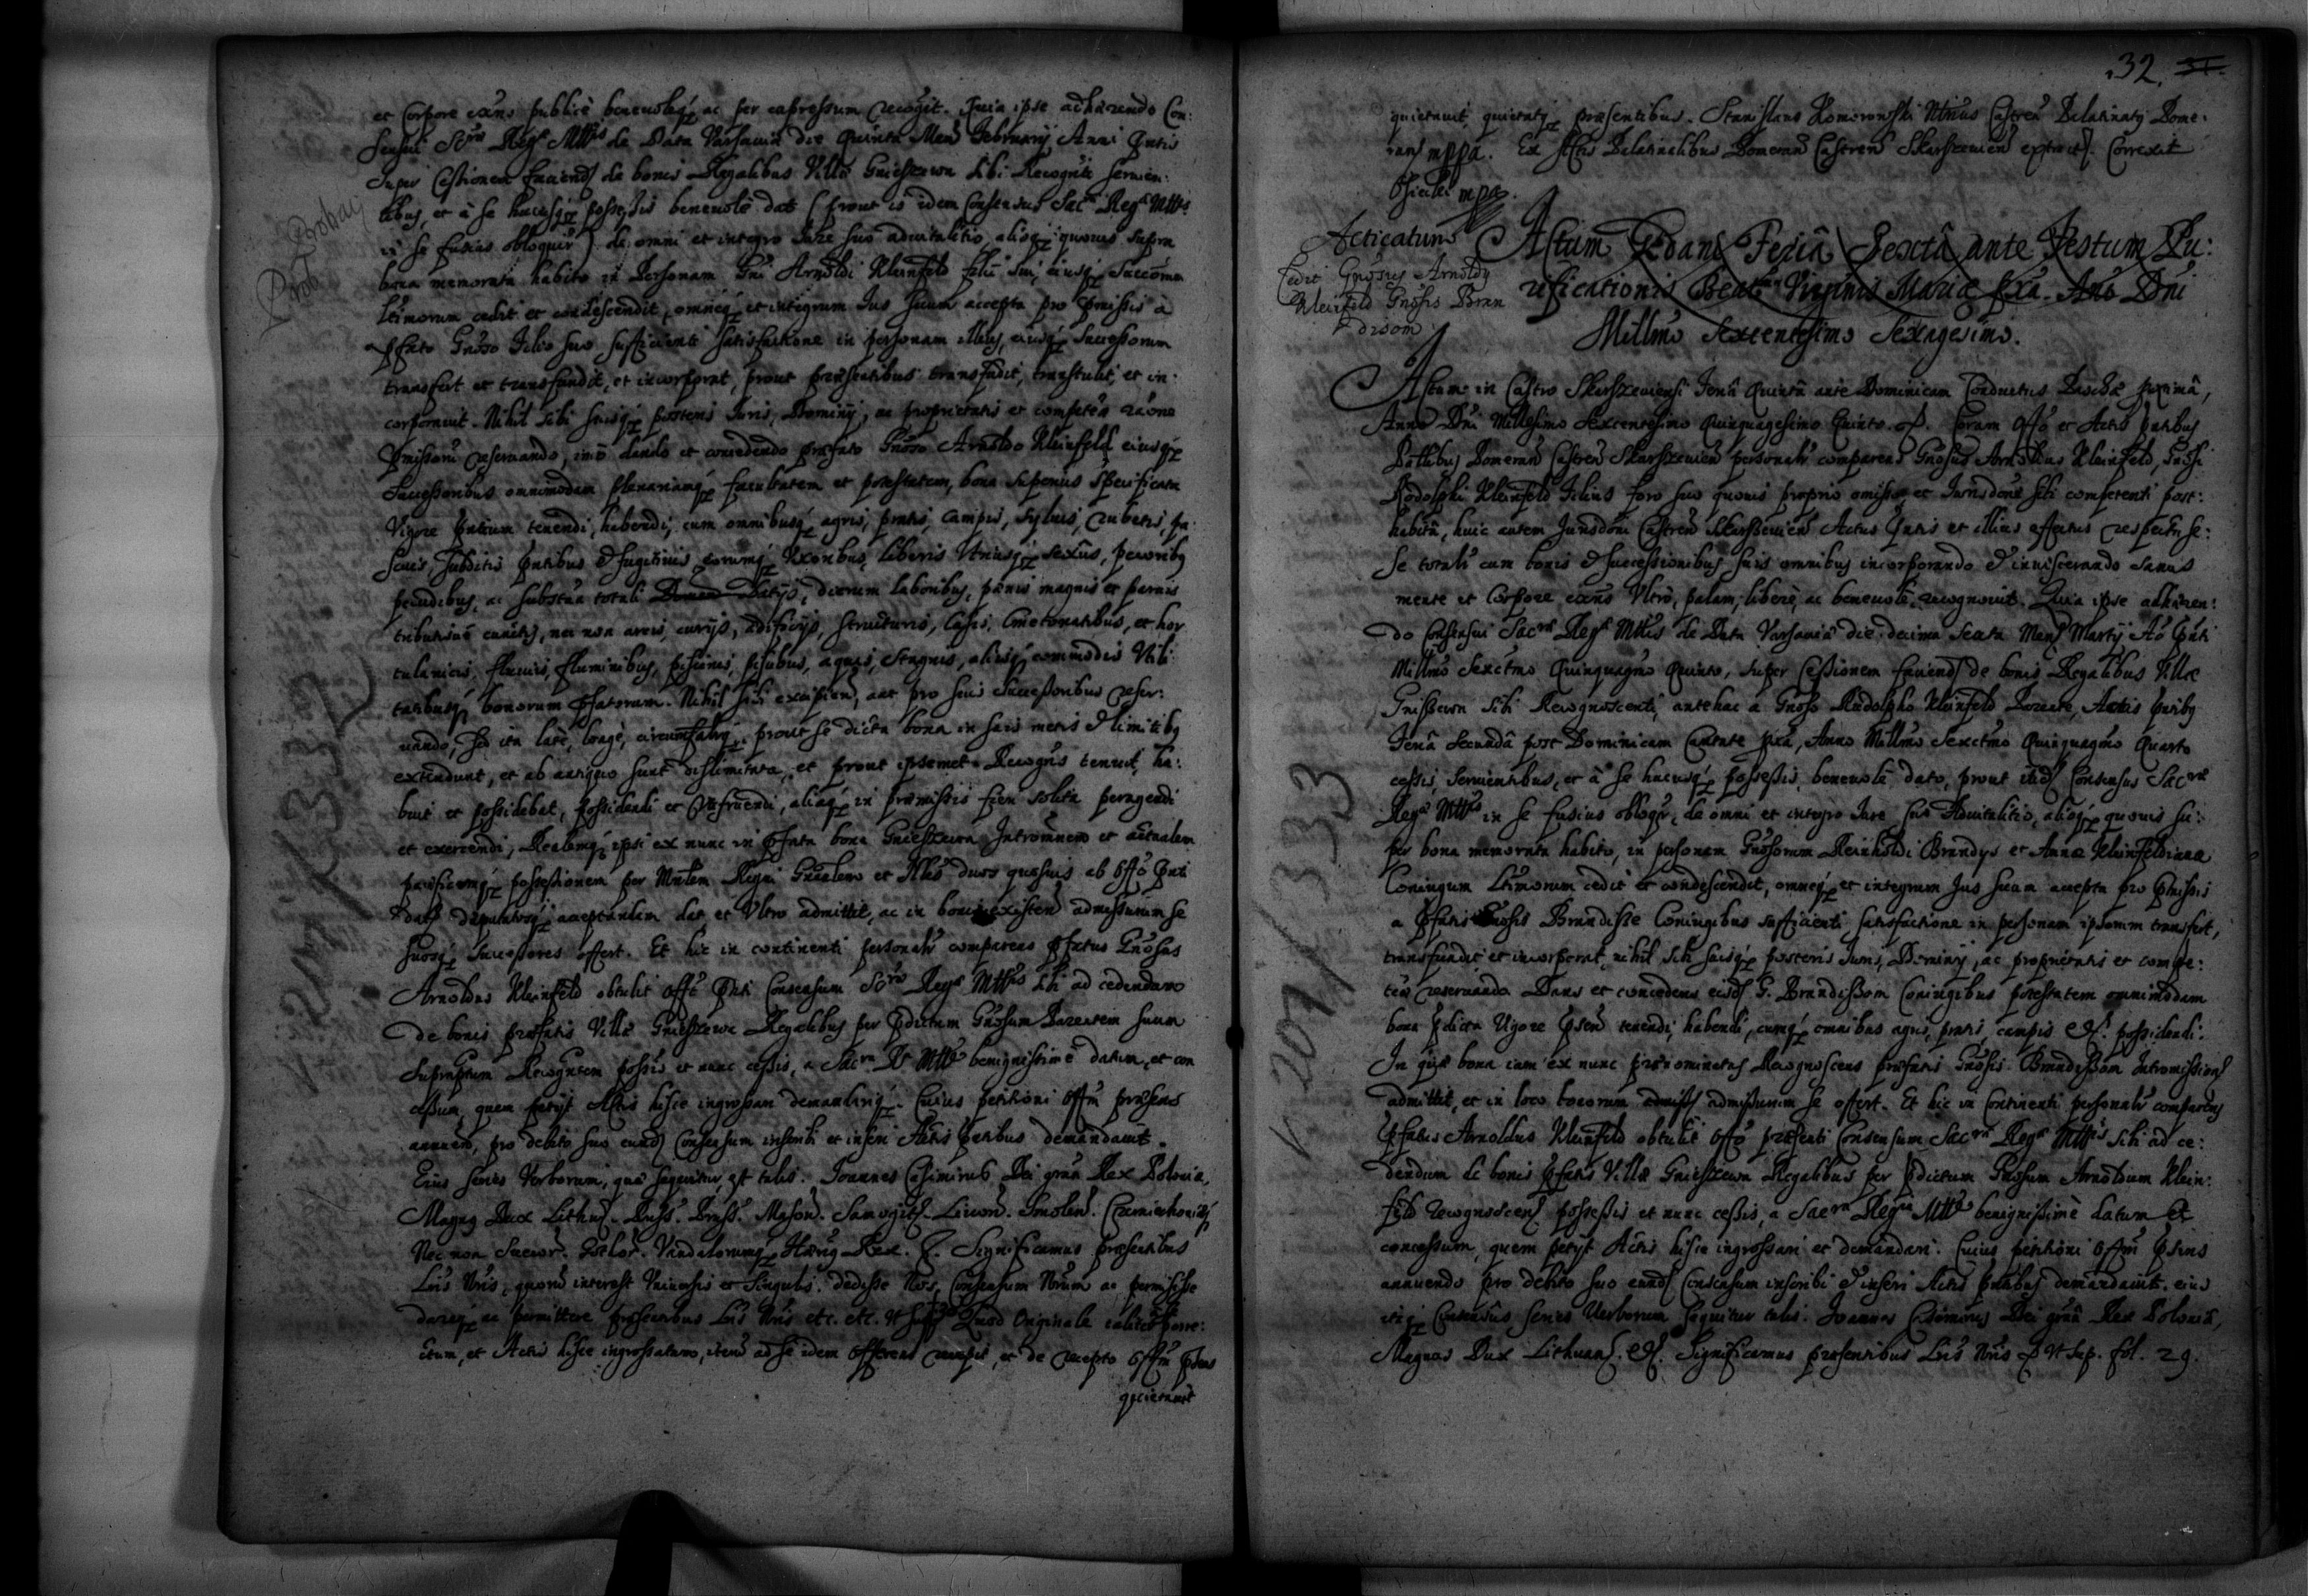 et Corpore exñs publicè beneuoleq̃ ac per expressum recogũit. Quia ipse adhærendo Con:
sensui Scræ Regæ Mttis de Data Varsauiæ die Quinta Mens Februarij Anni Pntis
Super Cessionem faciend de bonis Regalibus Villæ Gniessewa sibi Recognti seruien:
tibus, et à se hucusq̃ possessis beneuolè dato (prout is idem Consensus Sacræ Regæ Mttis
in se fusius obloquir) de omni et integro Iure suo aduitalitio alioq̃ quouis supra
bona memorata habito in Personam Gni Arnoldi Kleinfeld filii sui, eiusq̃ Succorum
Ltimorum cedit et condescendit, omneq̃ et integrum Ius suum accepta pro Pmissis a
Pfato Gnoso Filio suo sufficienti satisfactione in personam illius, eiusq̃ Successorum
transfert et transfundit, et incorporat, prout præsentibus transfudit, transtulit, et in:
corporauit. Nihil sibi suisq̃ posteris Iuris, Dominij, ac proprietatis et competen raõne
Pmissorũ reseruando, imò dando et concedendo præfato Gnoso Arnoldo Kleinfeld eiusq̃
Successoribus omnimodam plenariamq̃ facultatem et potestatem, bona superius specificata
Vigore Pntium tenendi, habendi, cum omnibusq̃ agris, pratis, campis, syluis, rubetis, pa:
scuis, Subditis Pntibus & fugitiuis eorumq̃ Uxoribus, liberis Utriusq̃ sexûs, pecoribq
pecudibus, ac substãa totali datijs, dierum laboribus, pænis magnis et paruis
tributisue cunctis, nec non areis, curijs, ædificijs, structuris, Casis, Cmetonalibus, et hor
tulanicis, fluuiis, fluminibus, piscinis, piscibus, aquis, stagnis, alijsq̃ commodis Utili
tatibusq̃ bonorum Pfatorum. Nihil sibi excipiend, aut pro suis Successoribus reser:
uando, sed ita latè, longè, circumfariq̃, prout se dicta bona in suis metis & limitibq
extendunt, et ab antiquo sunt dislimitata, et prout ipsemet Recogns tenuit, ha:
buit et possidebat, possidendi et Usufruendi, aliaq̃ in præmissis fieri solita peragendi
et exercendi, Realemq̃ ipsi ex nunc in Pfata bona Gniessewa Intromñem et actualem
pacificamq̃ possessionem per Mnlem Regni Gnralem et Nbles duos quosuis ab Offo Pnti
dand deputatosq̃ acceptandam dat et Ultro admittit, ac in bonis existen admissurum se
suosq̃ Successores offert. Et hic in continenti personalr comparens Pfatus Gnosus
Arnoldus Kleinfeld obtulit Offo Pnti Consensum Scræ Regæ Mttis sibi ad cedendum
de bonis præfatis Villæ Gniessewa Regalibus per Pdictum Gnosum Parentem suum
Suprascptum Recogntem possis et nunc cessis, a Sacra R Mtte benignissimè datum, et con
cessum, quem petijt Actis hisce ingrossari demandariq̃. Cuius petitioni Offm præsens
annuens, pro debito suo eund Consensum inscribi et inseri Actis Pntibus demandauit.
Eius series Verborum, quæ sequitur, est talis. Ioannes Casimirus Dei grãa Rex Poloniæ,
Magnq Dux Lithuæ. Russ. Pruss. Masou. Samogit. Liuon. Smolen. Czerniechouięq
Nec non Sueor. Gothor. Vandalorumq̃ Hæriq Rex. &. Significamus præsentibus
Lris Nris, quorũ interest Vniuersis et Singulis. dedisse Nos, Consensum Nrum ac permisisse
dareq̃ ac permittere præsentibus Lris Nris etc. etc. Ut supra Quod Originale taliter porre:
ctum, et Actis hisce ingrossatum, iterũ ad se idem offerens recepit, et de recepto Offm Pñs
quietauit
Probay
Prob
n 207/332
32. 31.
quietauit, quietatq̃ præsentibus. Stanislaus Komorowski Utriusq Castren Palatinatq Pome:
ran mppa. Ex Actis Palatinalibus Pomeran Castren Skarszeuien extract. Correxit
Osiecki mpa.
Acticatum
Cedit Gnosus Arnoldq
Kleinfeld Gnosis Bran
disom.
Actum Gedani Feria Sexta ante Festum Pu:
rificationis Beatæ Virginis Mariæ pxa. Año Dni
Millmo Sexcentesimo Sexagesimo.
Actum in Castro Skarszeuiensi Feriâ Quintâ ante Dominicam Conductus Paschæ proximâ,
Anno Dni Millesimo Sexcentesimo Quinquagesimo Quinto. &. Coram Offo et Actis Pntibus
Palbus Pomeran Castren Skarszeuien personalr comparens Gnosus Arnoldus Kleinfeld, Gnosi
Rodolphi Kleinfeld Filius foro suo quouis proprio omisso et Iurisdone sibi competenti post:
habitâ, huic autem Iurisdoni Castren Skarszeuien Actus Pntis et illius effectus respectu se:
se totalr cum bonis & successionibus suis omnibus incorporando & inuiscerando sanus
mente et Corpore exñs Vltrò, palam, liberè, ac beneuolè recognouit. Quia ipse adhæren:
do Consensui Sacræ Regæ Mttis de Data Varsauiæ die decima sexta Mens Martij Ao Pnti
Millmo Sexctmo Quinquagmo Quinto, super Cessionem faciend de bonis Regalibus Villæ
Gnissewa sibi Recognoscenti, antehac a Gnoso Rudolpho Kleinfeld Parente, Actis Pntibq
Feriâ Secundâ post Dominicam Cantate pxâ, Anno Millmo Sexctmo Quinquagmo Quarto
cessis, seruientibus, et à se hucusq̃ possessis, beneuolè dato, prout itid Consensus Sacræ
Regæ Mttis in se fusius obloqr, de omni et integro Iure suo Aduitalitio, alioq̃ quouis su:
per bona memorata habito, in personam Gnosorum Reinholdi Brandys et Annæ Kleinfeldianæ
Coniugum Ltimorum cedit et condescendit, omneq̃ et integrum Jus suum accepta pro Pmissis
a Pfatis Gnosis Brandisse Coniugibus sufficienti satisfactione in personam ipsorum transfert,
transfundit et incorporat, nihil sibi suisq̃ posteris Iuris, Dominij, ac proprietatis et compe:
ten reseruando. Dans et concedens eisd G. Brandissom Coniugibus potestatem omnimodam
bona Pdicta Vigore Psen tenendi, habendi, cumq̃ omnibus agris, pratis, campis &c. possidendi.
In quæ bona iam ex nunc prænominatus Recognoscens præfatis Gnosis Brandissom Intromission
admittit, et in loco bonorum admissurum se offert. Et hic in Continenti personalr comparens
Pfatus Arnoldus Kleinfeld obtulit Offo præsenti Consensum Sacræ Regæ Mttis sibi ad ce:
dendum de bonis Pfatis Villæ Gniessewa Regalibus per Pdictum Gnosum Arnoldum Klein:
feld recognoscen possessis et nunc cessis, a Sacra Regia Mtte benignissimè datum et
concessum, quem petijt Actis hisce ingrossari et demandari. Cuius petitioni Offm Psens
annuendo pro debito suo eund Consensum inscribi & inseri Actis Pntibus demandauit. eius
itaq̃ Consensus series Verborum sequitur talis. Joannes Casimirus Dei grãa Rex Poloniæ,
Magnus Dux Lithuan. &c. Significamus præsentibus Lris Nris & Ut sup. fol. 29.
n 207/333